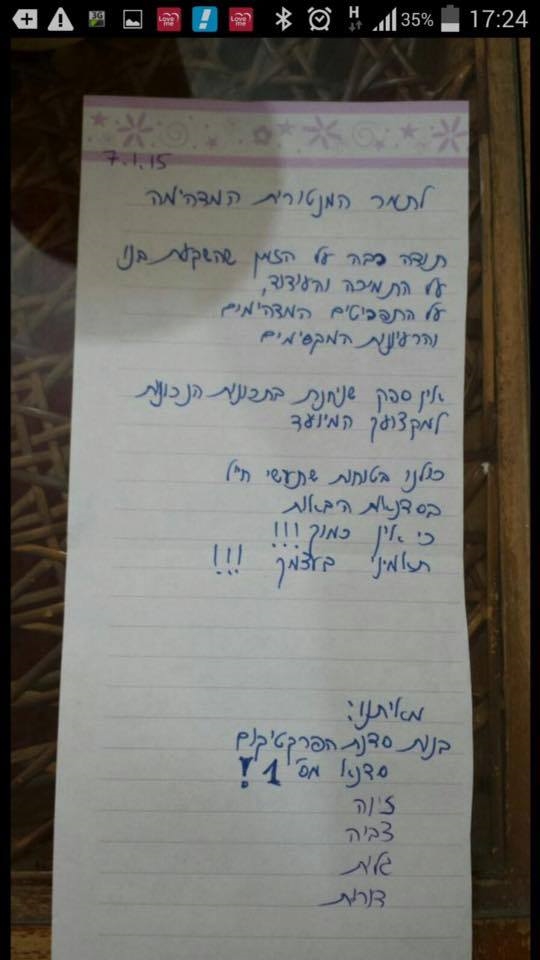 3G
Love me
Love me
H
35%
17:24
7.1.15
לתמר המנטורית המדהימה
תודה רבה על הזמן שהשקעת בנו
על התמיכה והעידוד,
על התפריטים המדהימים
והרעיונות המקסימים
אין ספק שניחנת בתכונות הנכונות
למקצועך המיועד
כולנו בטוחות שתעשי חיל
בסדנאות הבאות
כי אין כמוך!!!
תאמיני בעצמך !!!
מאיתנו:
בנות סדנת הפרקטיקום
סדנא מס' 1!
זיוה
צביה
גלית
דורית